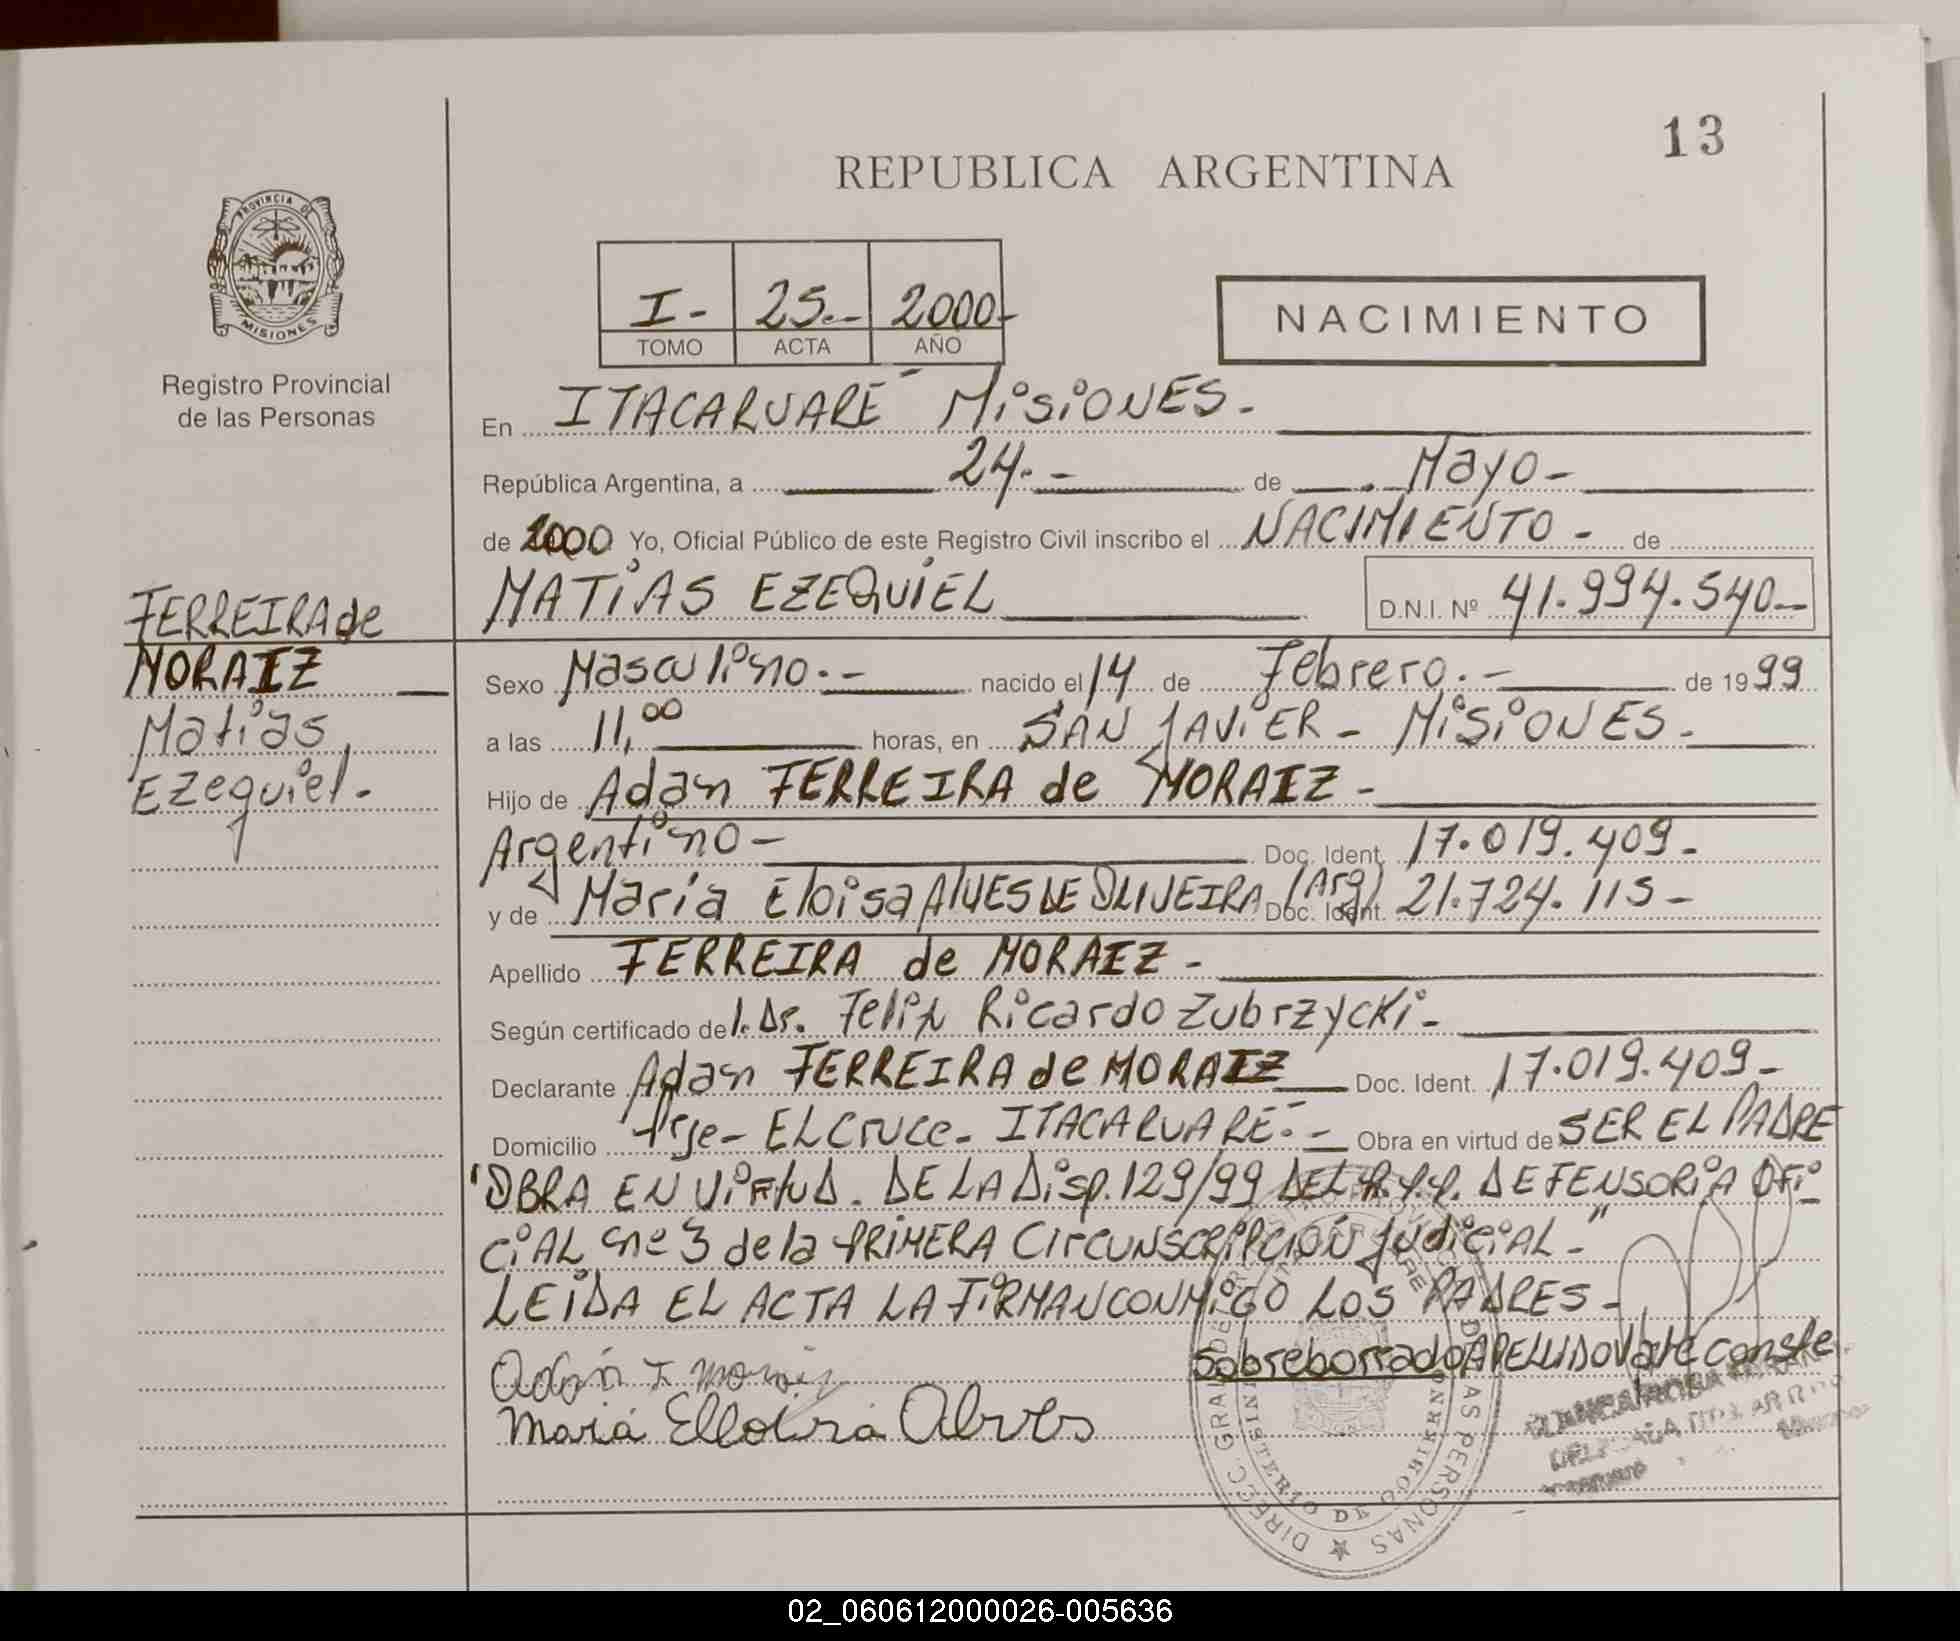 13
REPUBLICA ARGENTINA
PROVINCIA DE
MISIONES
Registro Provincial
de las Personas
I- 25.- 2000-
TOMO ACTA AÑO
NACIMIENTO
En ITACARUARE MiSiONES.-
República Argentina, a 24.- de Mayo-
de 2000 Yo, Oficial Público de este Registro Civil inscribo el NACIMIENTO - de
MATIAS EZEQUIEL D.N.I. Nº 41.994.540-
FERREIRA de
MORAIZ
Matias
Ezequiel.-
Sexo Masculino.- nacido el 14 de Febrero.- de 1999
a las 11,00 horas, en SAN JAVIER - MISIONES.-
Hijo de Adan FERREIRA de MORAIZ -
Argentino- Doc. Ident. 17.019.409-
y de María Eloisa ALVES DE OLIVEIRA (Arg) Doc. Ident. 21.724.115-
Apellido FERREIRA de MORAIZ -
Según certificado del. Dr. Felix Ricardo Zubrzycki-
Declarante Adan FERREIRA de MORAIZ Doc. Ident. 17.019.409-
Domicilio Prje- EL Cruce- ITACARUARE.- Obra en virtud de SER EL PADRE
"OBRA EN VIRTUD. DE LA Disp. 129/99 DEL R.P.P. DEFENSORIA OFI-
CIAL nº 3 de la PRIMERA CIRCUNSCRIPCIÓN JudiciAL-"
LEIDA EL ACTA LA FIRMAN CONMIGO LOS PADRES-
Sobreborrado APELLIDO Vale conste
Adán F Moraiz
Maria Elloiza Alves
DIRECC. GRAL. DE PERSONAS
MINISTERIO DE GOBIERNO
02_060612000026-005636